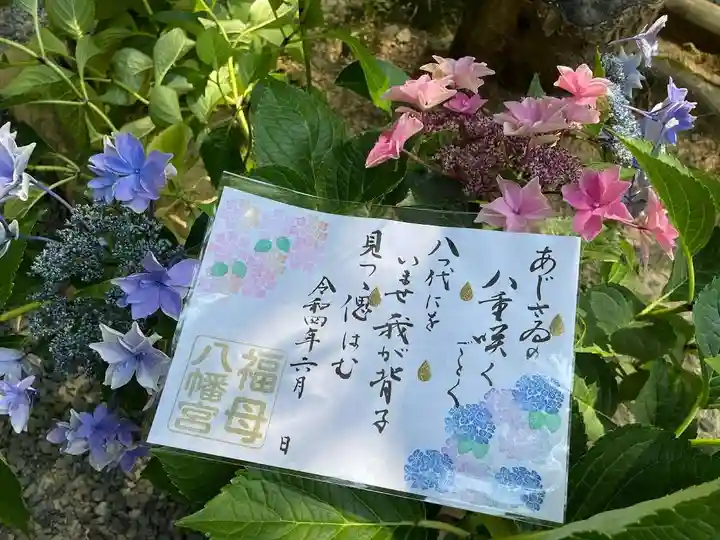 あじさゐの
八重咲く
ごとく
八つ代にを
いませ我が背子
見つゝ偲はむ
令和四年六月
日
福母
八幡宮